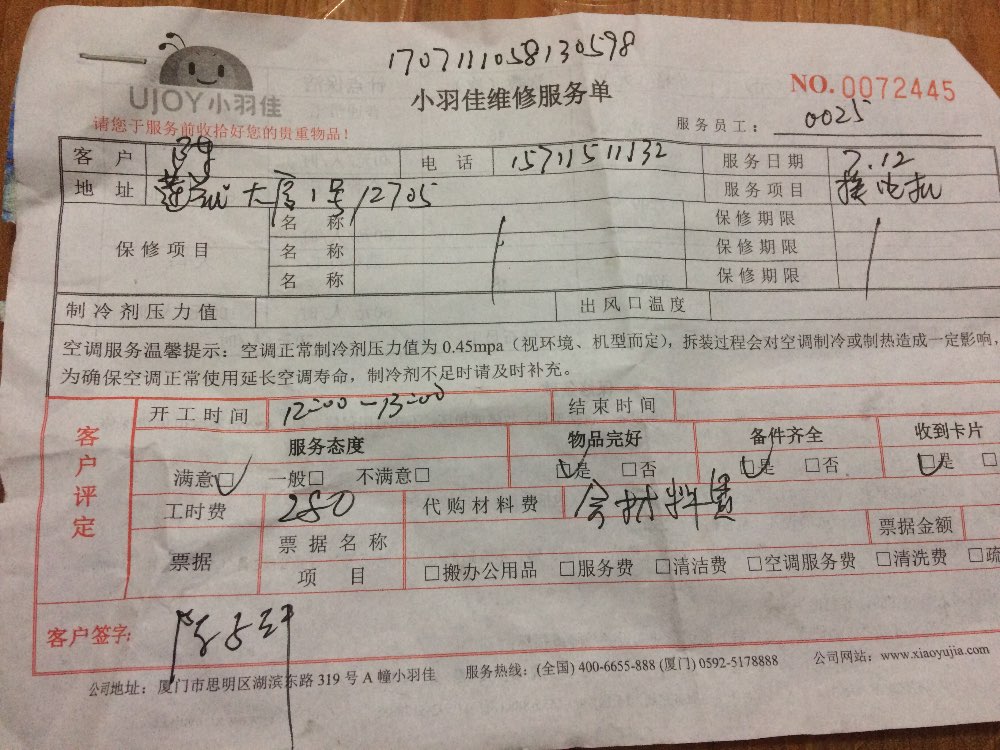 1707111058130598
UJOY小羽佳
小羽佳维修服务单
NO.0072445
请您于服务前收拾好您的贵重物品！
服务员工： 0025
客 户 陈 电 话 15711511332 服务日期 7.12
地 址 大 1号12705 服务项目 换电机
保修项目 名 称 保修期限
名 称 保修期限
名 称 保修期限
制冷剂压力值 出风口温度
空调服务温馨提示：空调正常制冷剂压力值为 0.45mpa（视环境、机型而定），拆装过程会对空调制冷或制热造成一定影响，
为确保空调正常使用延长空调寿命，制冷剂不足时请及时补充。
客户评定 开工时间 12:00—13:00 结束时间
服务态度 物品完好 备件齐全 收到卡片
满意□ 一般□ 不满意□ □是 □否 □是 □否 □是 □
工时费 280 代购材料费 含材料费
票据 票据名称 票据金额
项 目 □搬办公用品 □服务费 □清洁费 □空调服务费 □清洗费 □疏
客户签字:
公司地址：厦门市思明区湖滨东路 319 号 A 幢小羽佳 服务热线：(全国) 400-6655-888 (厦门) 0592-5178888 公司网站：www.xiaoyujia.com